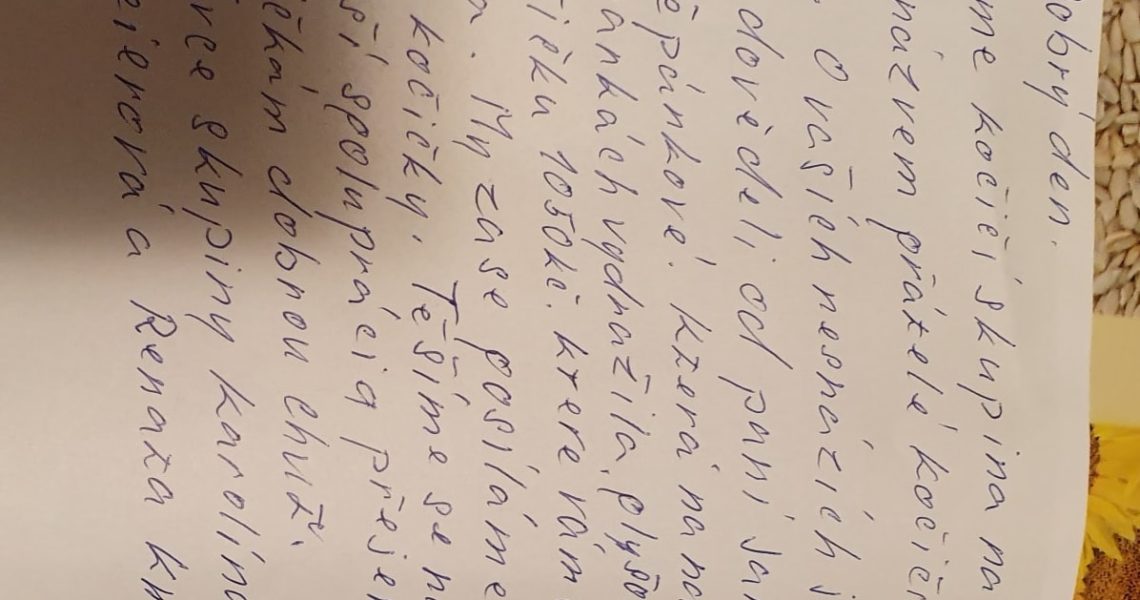 obrý den.
me kočičí skupina na
názvem přátelé kočič
O vašich nesnázích j
dověděli od paní Ja
ě pánkové. která na na
ankách vydražila plyšo
ičku 1050kč. které vám
a. My zase posíláme
kočičky. Těšíme se n
ší spolupráci a přeje
čkám dobrou chuť.
vce skupiny karolína
eierová a Renata km